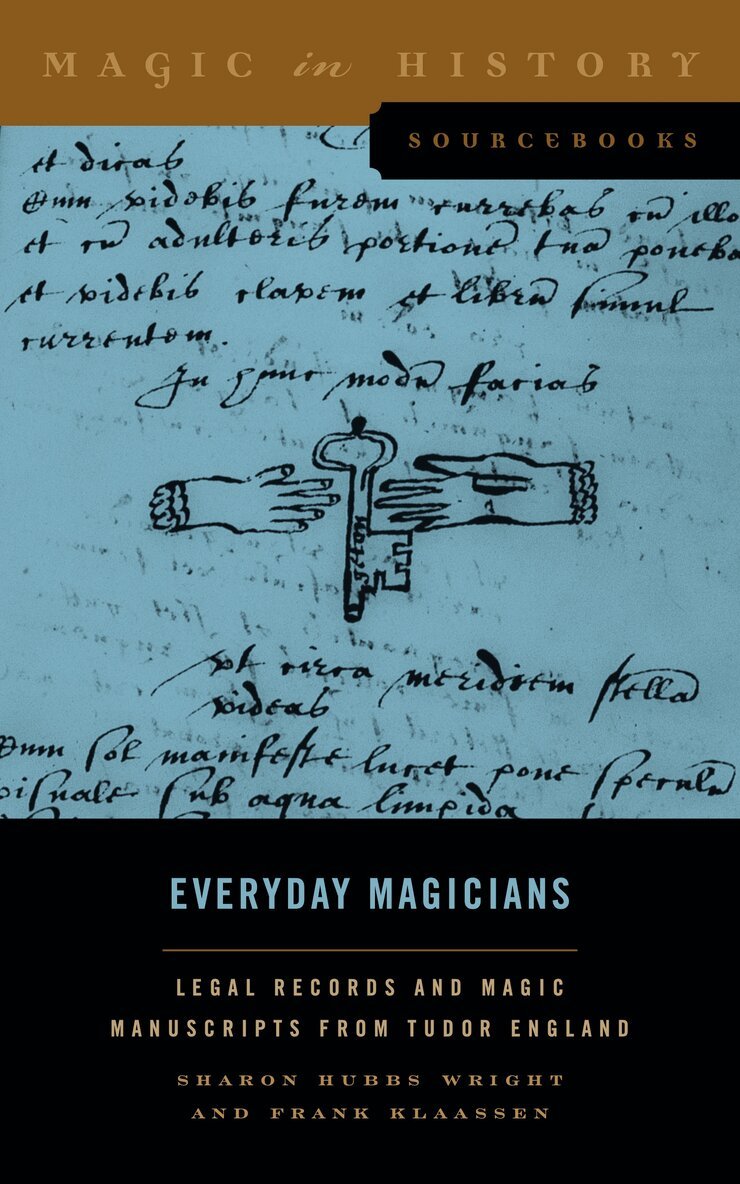 MAGIC in HISTORY
SOURCEBOOKS
et dicas
Dum videbis furem currebas cū illo
et cū adulteris portionē tuā poneba
et videbis clavem et librū simul
currentem.
In hunc modū facias
ut circa meridiem stellā
videas
Dum sol manifeste lucet pone speculū
visuale sub aqua limpida
EVERYDAY MAGICIANS
LEGAL RECORDS AND MAGIC
MANUSCRIPTS FROM TUDOR ENGLAND
SHARON HUBBS WRIGHT
AND FRANK KLAASSEN